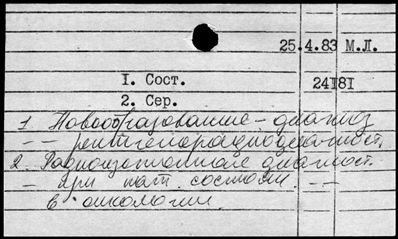 25.4.83 М.Л.
1. Сост. 24181
2. Сер.
1 Новообразование - диагноз
-"- рентгенорадиодиагност.
2. Радиоизотопная диагност.
- при пат. состоян. -"-
в онкологии.